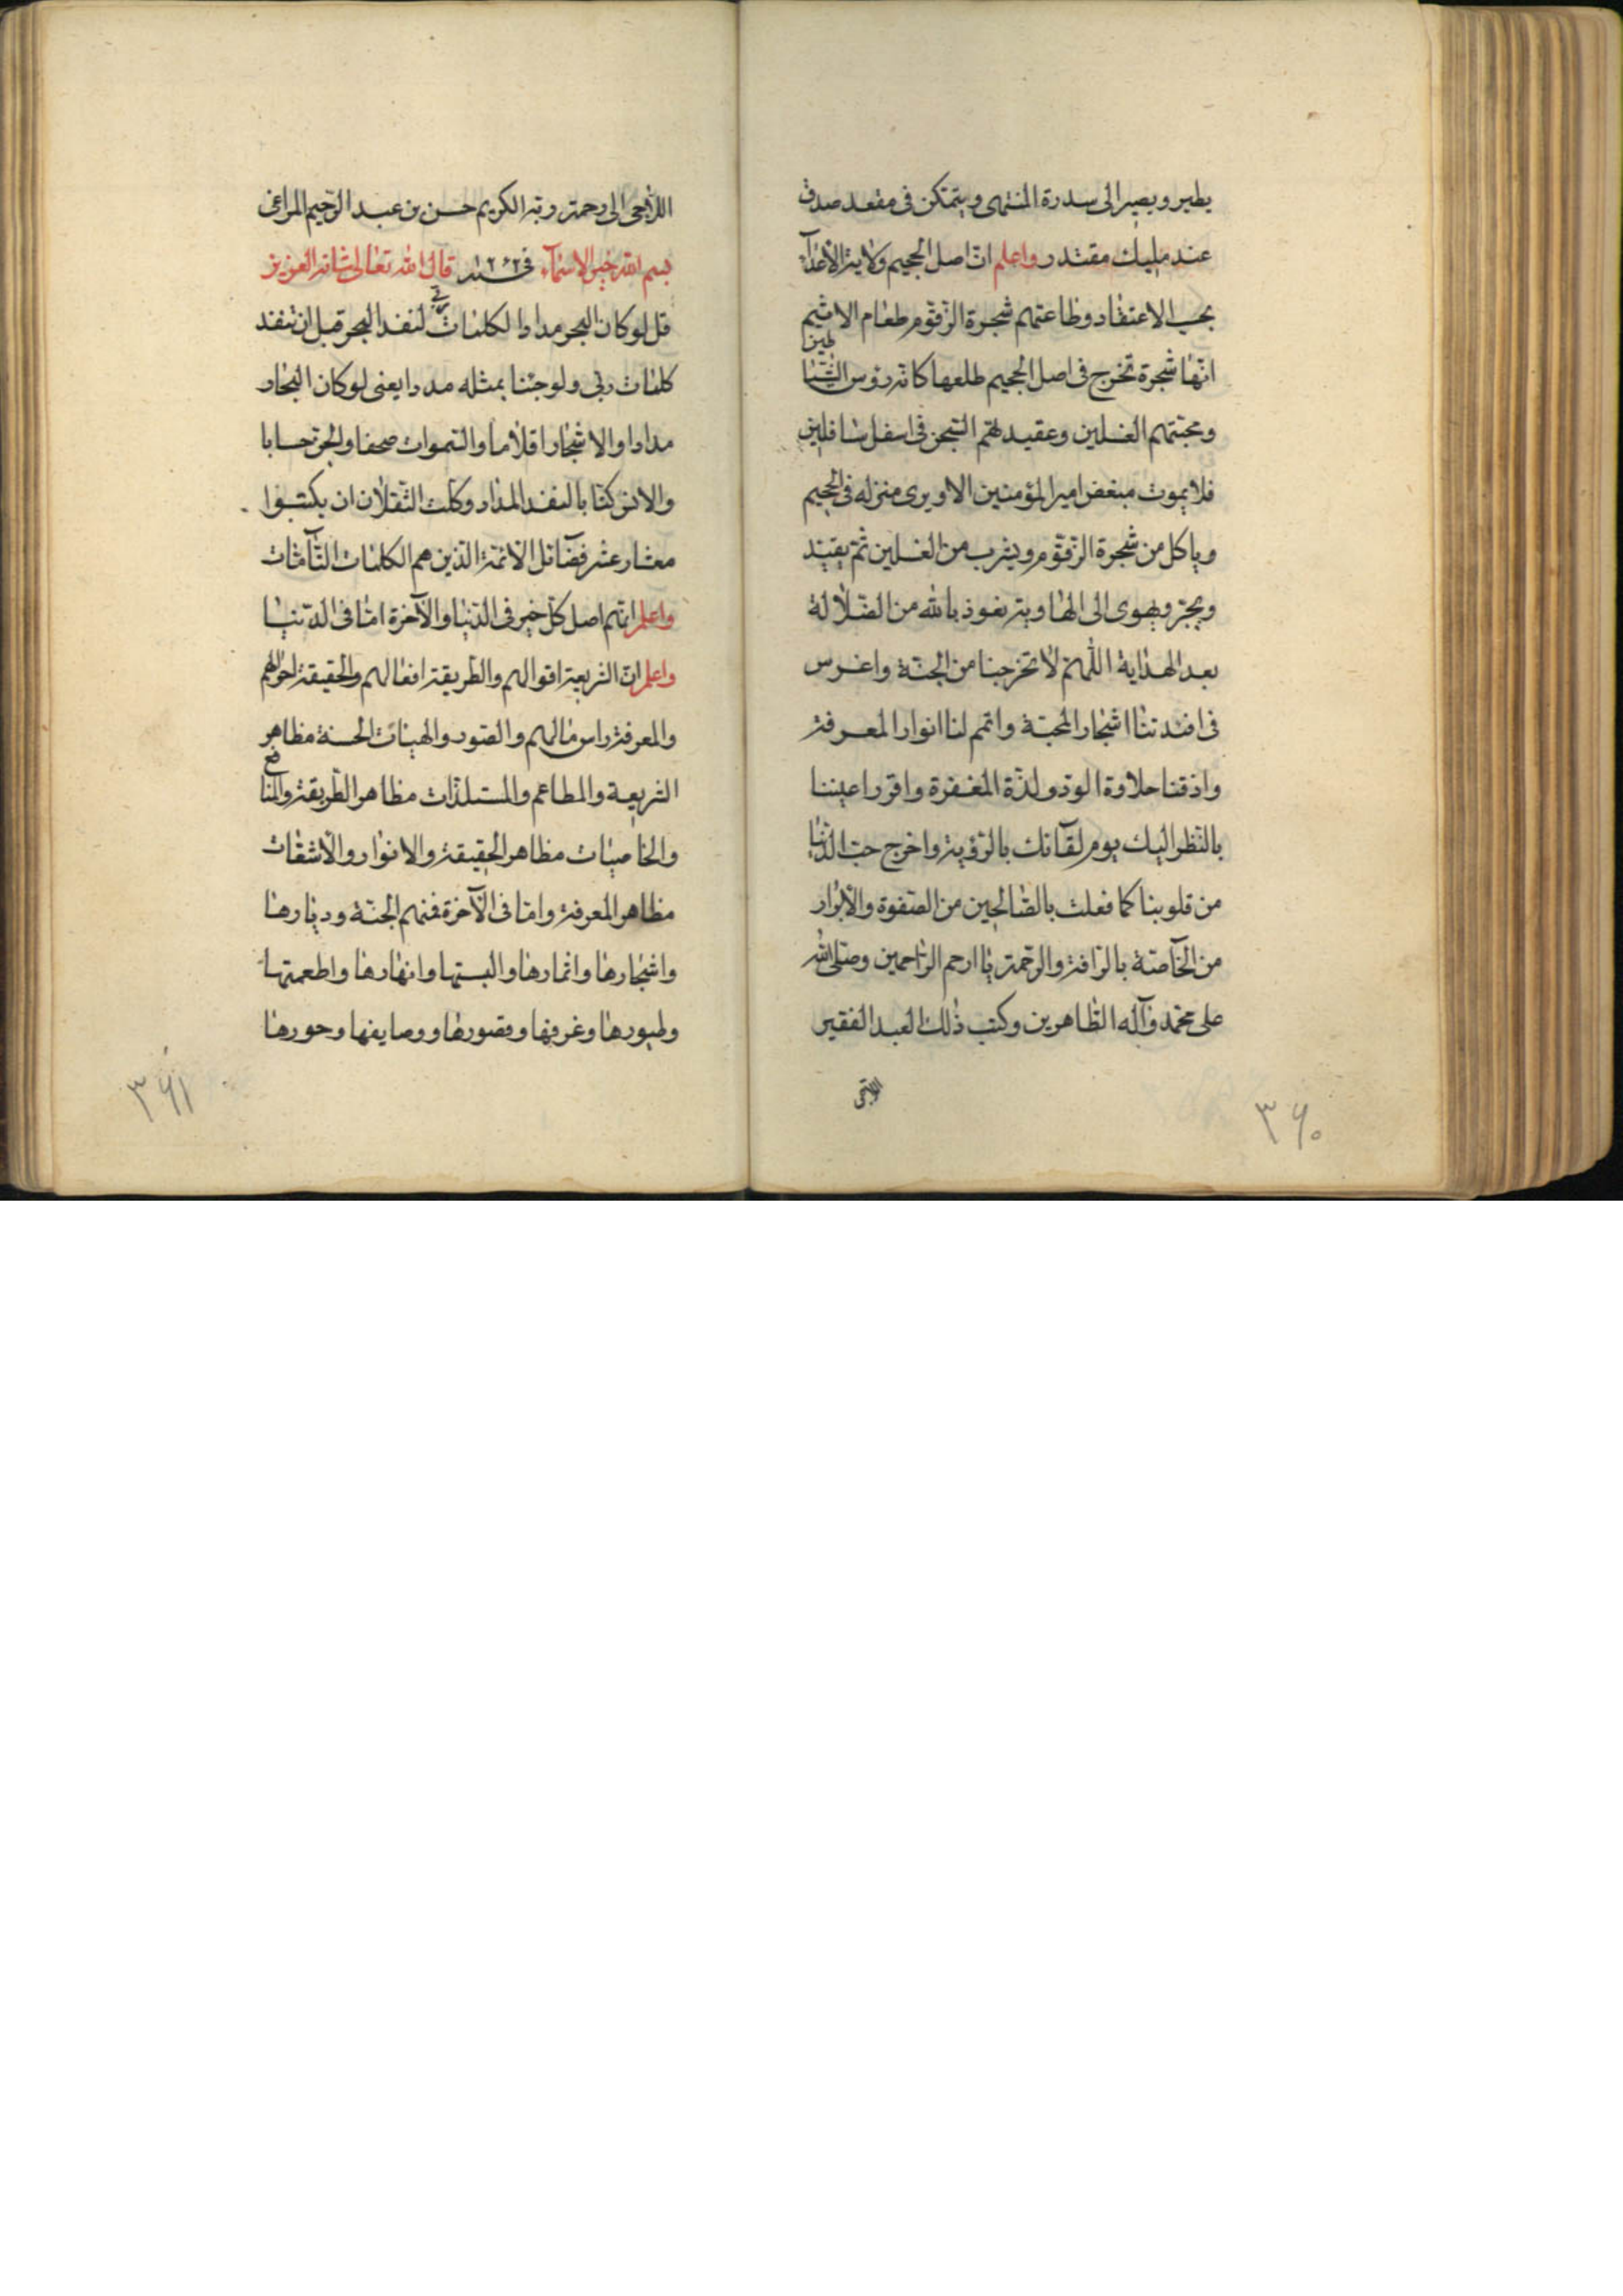 يطير ويصير الى سدرة المنتهى ويتمكن فى مقعد صدق
عند مليك مقتدر واعلم انّ اصل الجحيم ولاية الأعدآء
بحب الاعتقاد وطاعتهم شجرة الزقّوم طعام الاثيم
انّها شجرة تخرج فى اصل الجحيم طلعها كانه رؤس الشّيٰا
طين
ومحبتهم الغسلين وعقيدتهم السّجن فى اسفل سافلين
فلا يموت مبغض امير المؤمنين الا ويرى منزله فى الجحيم
وياكل من شجرة الزقّوم ويشرب من الغسلين ثمّ يقيّد
ويجرّ ويهوى الى الهاوية نعوذ بالله من الضّلالة
بعد الهداية اللّهمّ لا تخرجنا من الجنّة واغرس
فى افئدتنا اشجار المحبّة واتمم لنا انوار المعرفة
واذقنا حلاوة الودّ ولذّة المغفرة واقرر اعيننا
بالنّظر اليك يوم لقآئك بالرّؤية واخرج حبّ الدّنيا
من قلوبنا كما فعلت بالصّالحين من الصّفوة والأبرار
من الخآصّة بالرّافة والرّحمة يا ارحم الرّاحمين وصلى الله
على محمّد وآله الطّاهرين وكتب ذٰلك العبد الفقير
٣٦٠
اللاجى الى رحمة ربّه الكريم حسن بن عبد الرّحيم المراغى
بسم الله خير الاسمآء فى سنة ١٢٦٢ قال الله تعالى شانه العزيز
قل لو كان البحر مدادا لكلمات ربّى لنفد البحر قبل ان تنفد
كلمات ربى ولو جئنا بمثله مددا يعنى لو كان البحار
مدادا والاشجار اقلاما والسّموات صحفا والجنّ حسابا
والانس كتّابا لنفد المداد وكلّت الثّقلان ان يكتبوا
معشار عشر فضآئل الأئمّة الّذين هم الكلمات التّآمّات
واعلم انّهم اصل كلّ خير فى الدّنيا والآخرة امّا فى الدّنيا
واعلم انّ الشريعة اقوالهم والطّريقة افعالهم والحقيقة احوالهم
والمعرفة راس مالهم والصّور والهيئات الحسنة مظاهر
الشريعة والمطاعم والمستلذّات مظاهر الطّريقة والمنا
فع
والخاصيّات مظاهر الحقيقة والانوار والأشعّات
مظاهر المعرفة وامّا فى الآخرة فنهم الجنّة وديارها
واشجارها واثمارها والبستها وانهارها واطعمتها
وطيورها وغرفها وقصورها ووصايفها وحورها
٣٦١